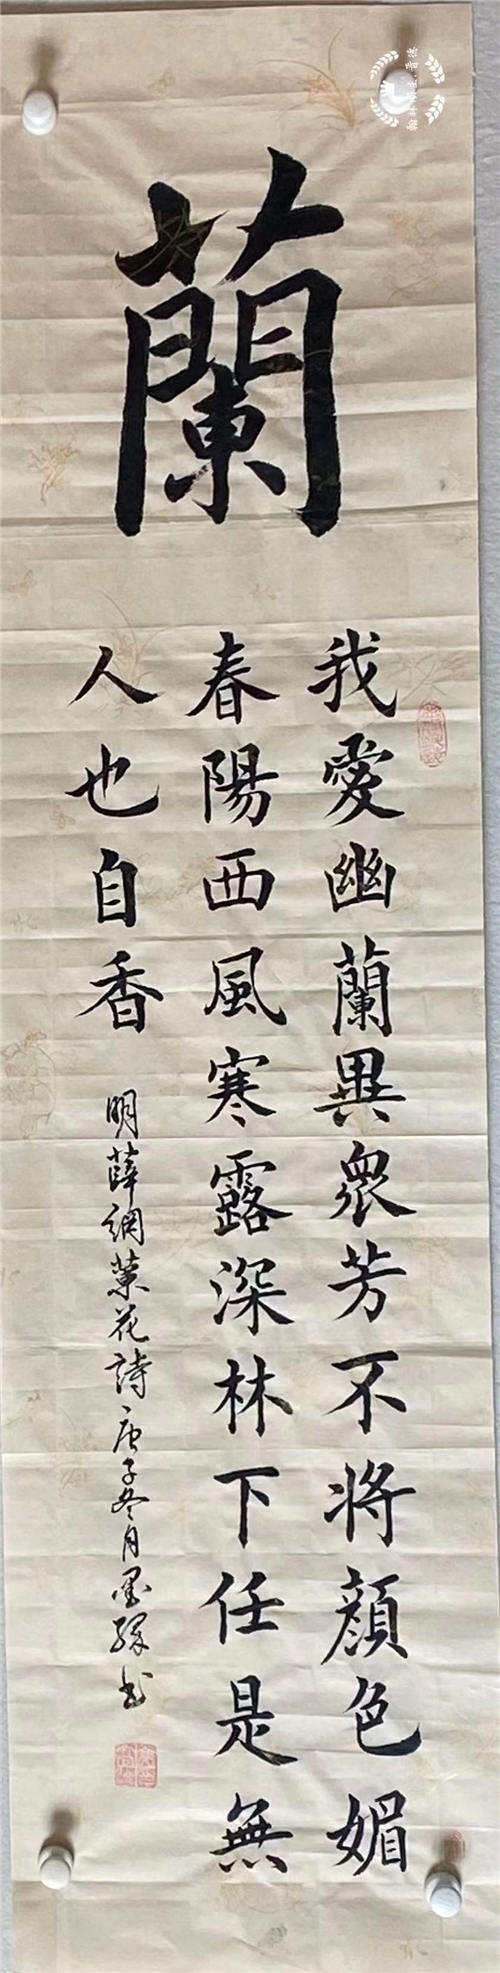 蘭
我愛幽蘭異衆芳不將顔色媚
春陽西風寒露深林下任是無
人也自香
明薛網蘭花詩庚子冬月墨緣书